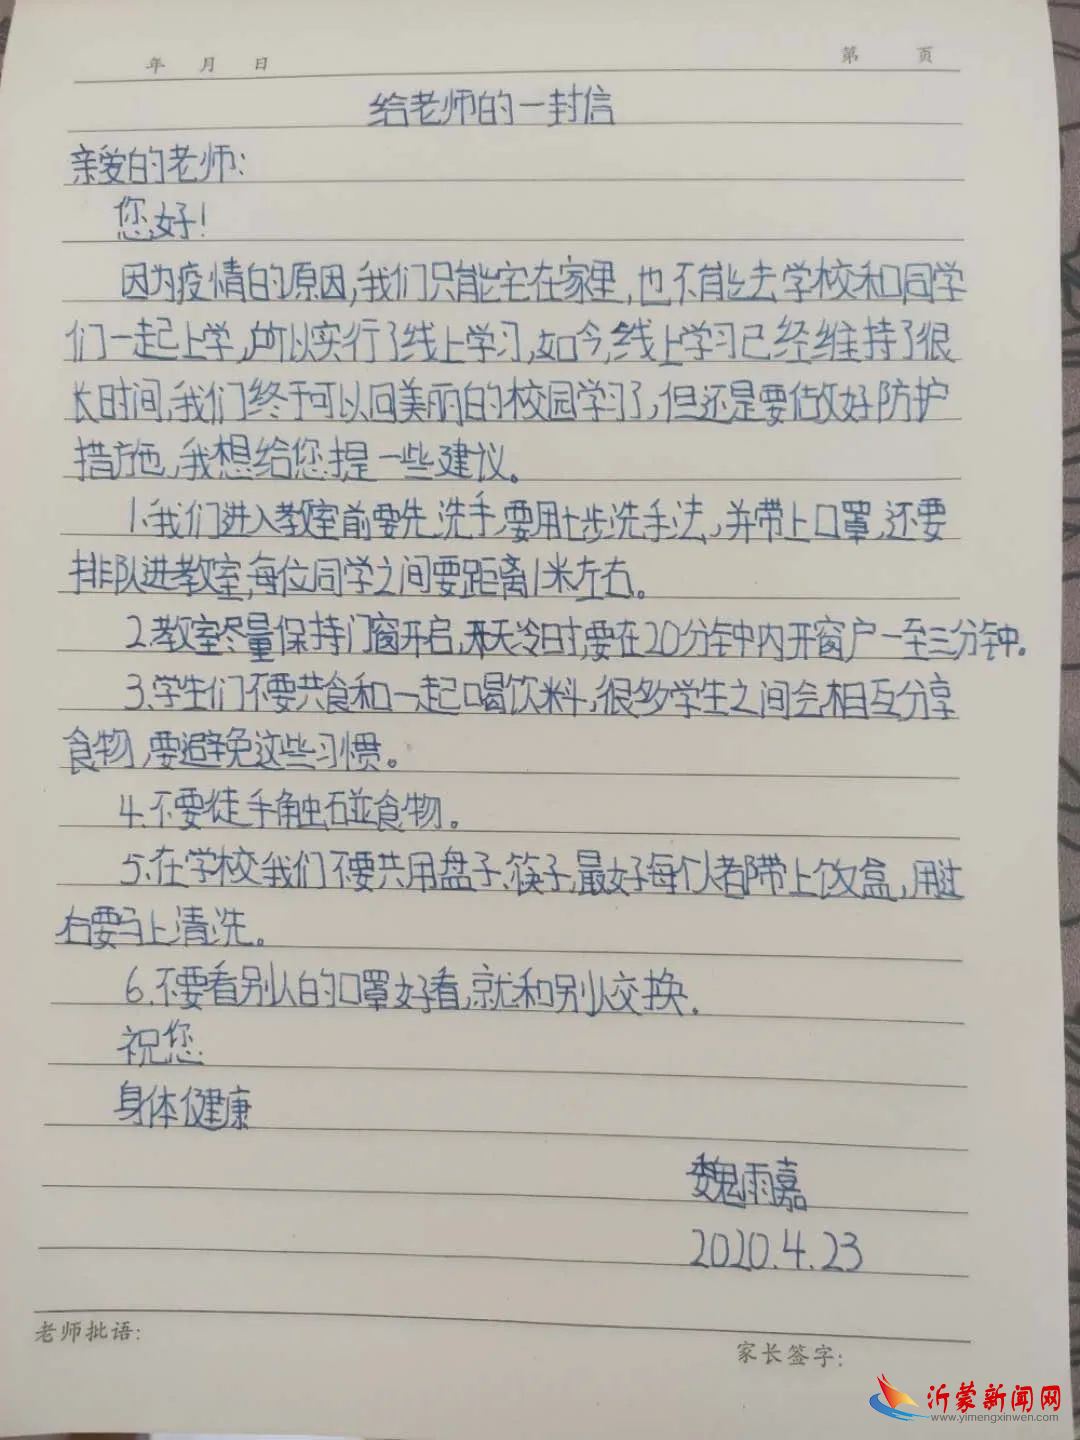 年 月 日 第 页
给老师的一封信
亲爱的老师:
您好!
因为疫情的原因,我们只能宅在家里,也不能去学校和同学
们一起上学,所以实行了线上学习,如今,线上学习已经维持了很
长时间,我们终于可以回美丽的校园学习了,但还是要做好防护
措施,我想给您提一些建议。
1.我们进入教室前要先洗手,要用七步洗手法,并带上口罩,还要
排队进教室,每位同学之间要距离1米左右。
2.教室尽量保持门窗开启,天冷时,要在20分钟内开窗户一至三分钟。
3.学生们不要共食和一起喝饮料,很多学生之间会相互分享
食物,要避免这些习惯。
4.不要徒手触碰食物。
5.在学校我们不要共用盘子、筷子,最好每个人都带上饭盒,用过
后要马上清洗。
6.不要看别人的口罩好看,就和别人交换.
祝您
身体健康
魏雨嘉
2020.4.23
老师批语:
家长签字:
沂蒙新闻网
www.yimengxinwen.com